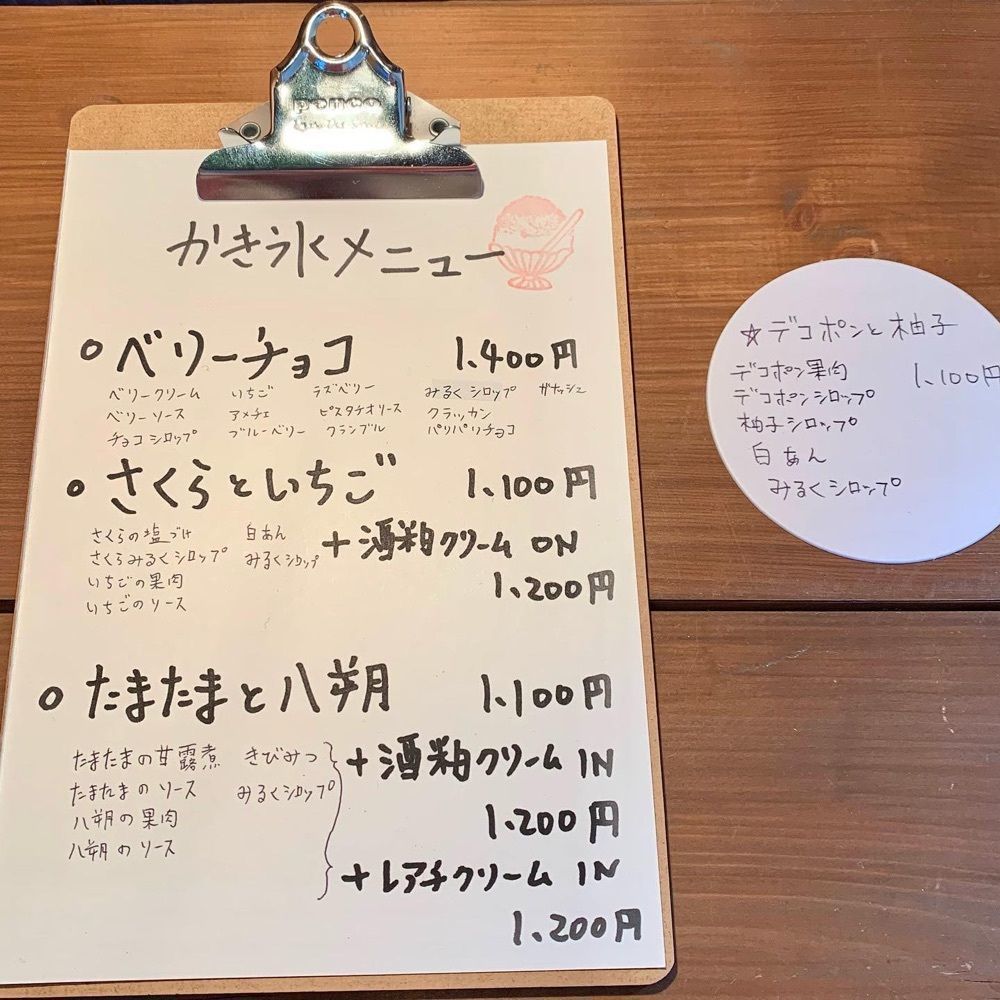 かき氷メニュー
○ベリーチョコ 1,400円
ベリークリーム いちご ラズベリー みるくシロップ ガナッシュ
ベリーソース アメチェ ピスタチオソース クラッカン
チョコシロップ ブルーベリー クランブル パリパリチョコ
○さくらといちご 1,100円
さくらの塩づけ 白あん
さくらみるくシロップ みるくシロップ
いちごの果肉
いちごのソース
+酒粕クリームON
1,200円
○たまたまと八朔 1,100円
たまたまの甘露煮 きびみつ
たまたまのソース みるくシロップ
八朔の果肉
八朔のソース
+酒粕クリームIN
1,200円
+レアチクリームIN
1,200円
☆デコポンと柚子
デコポン果肉 1,100円
デコポンシロップ
柚子シロップ
白あん
みるくシロップ